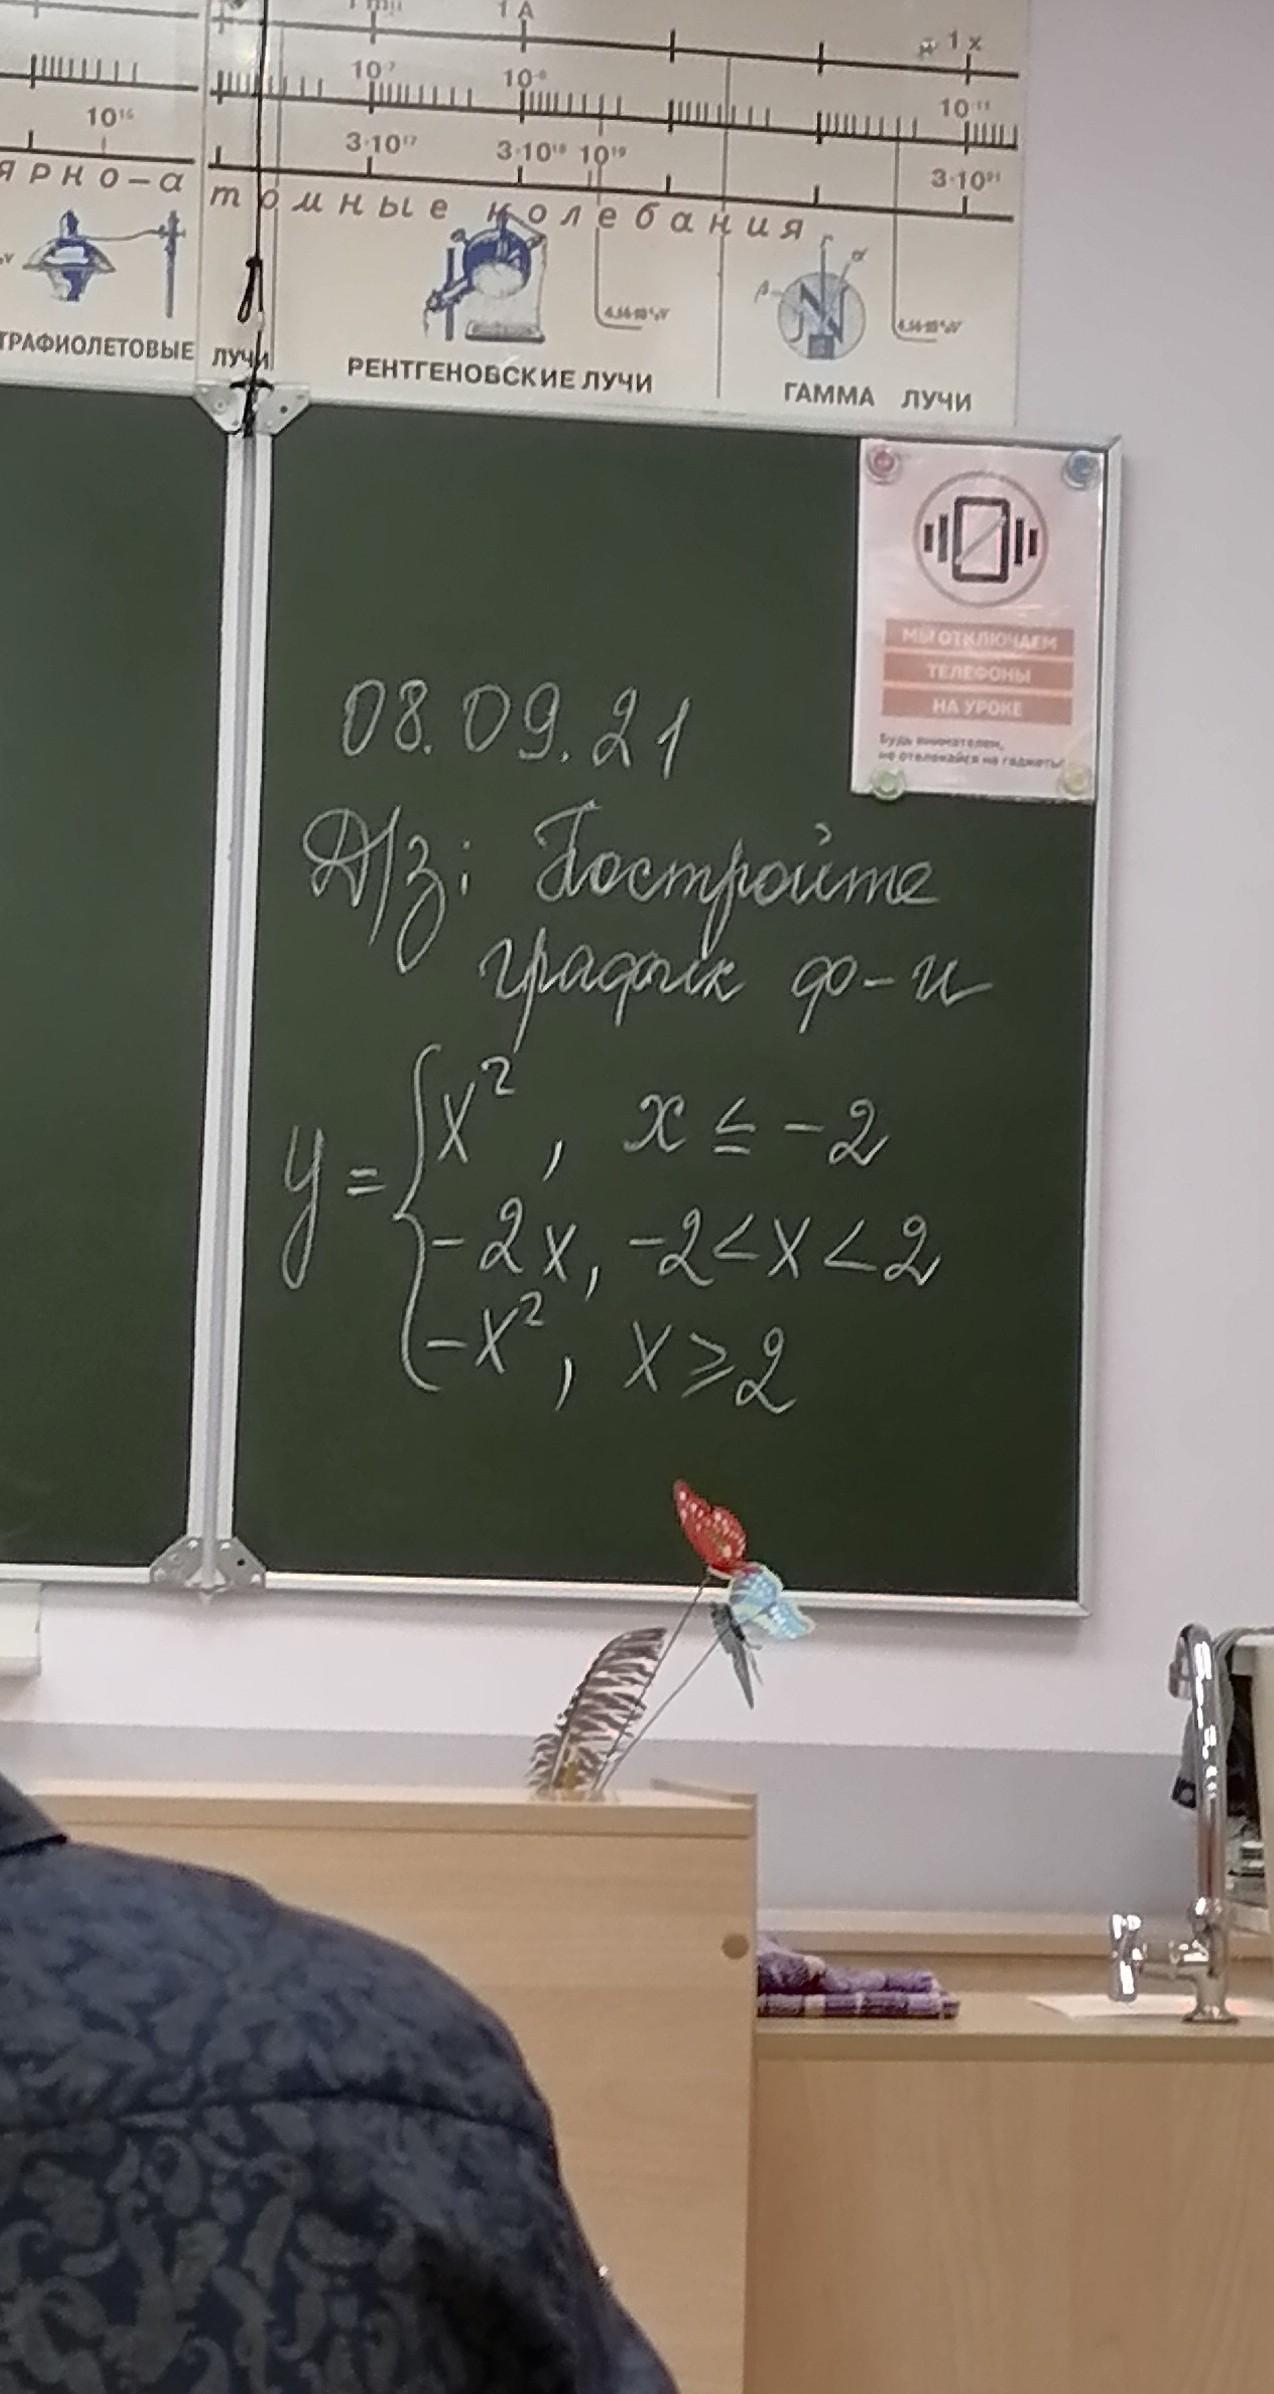 1 А
1 х
10⁻⁷
10⁻⁸
10⁻¹¹
10¹⁶
3·10¹⁷
3·10¹⁸ 10¹⁹
3·10²¹
ЯРНО-атомные колебания
ТРАФИОЛЕТОВЫЕ ЛУЧИ
РЕНТГЕНОВСКИЕ ЛУЧИ
ГАММА ЛУЧИ
МЫ ОТКЛЮЧАЕМ
ТЕЛЕФОНЫ
НА УРОКЕ
Будь внимателен,
не отвлекайся на гаджеты!
08.09.21
Д/з: Постройте
график ф-и
y = { x², x ≤ -2
-2x, -2 < x < 2
-x², x ⩾ 2